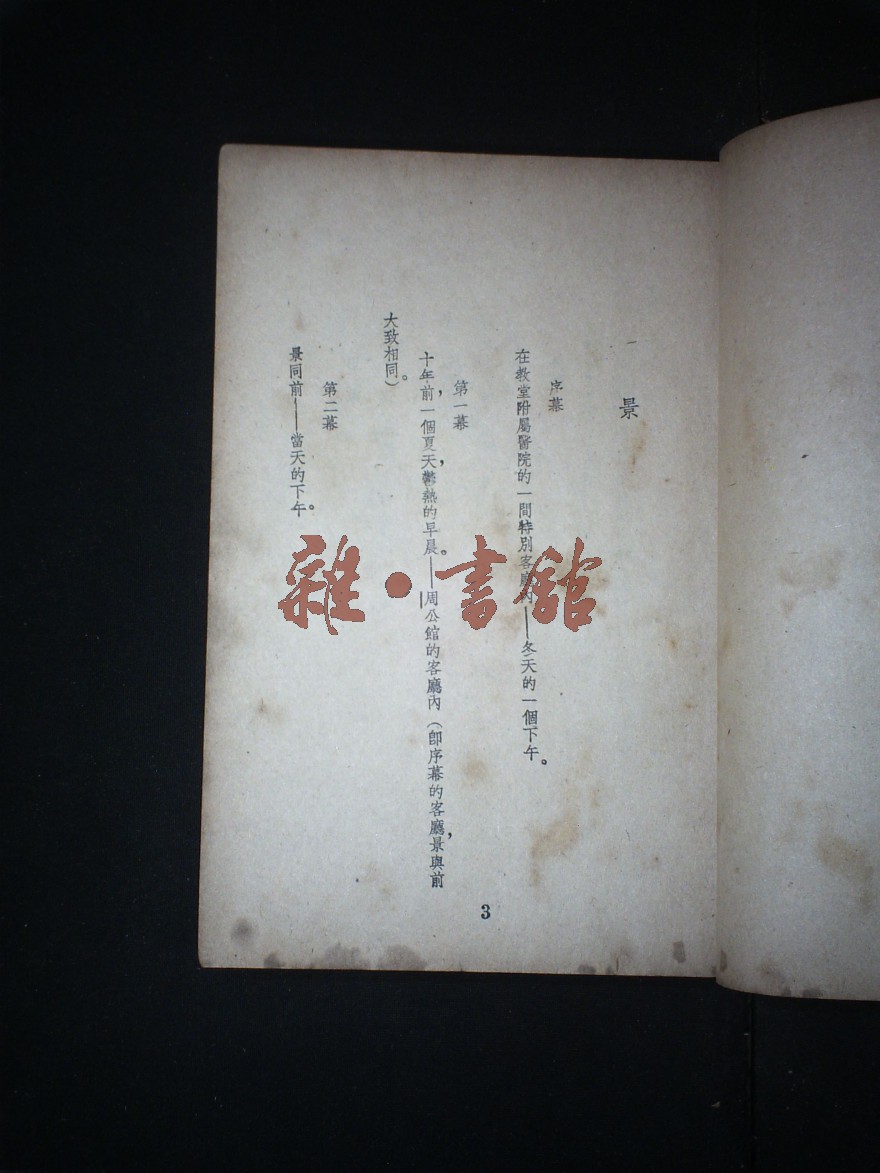 景
序幕
在教堂附屬醫院的一間特別客廳內——冬天的一個下午。
第一幕
十年前，一個夏天，鬱熱的早晨。——周公館的客廳內（卽序幕的客廳，景與前
大致相同。）
第二幕
景同前——當天的下午。
3
雜·書館